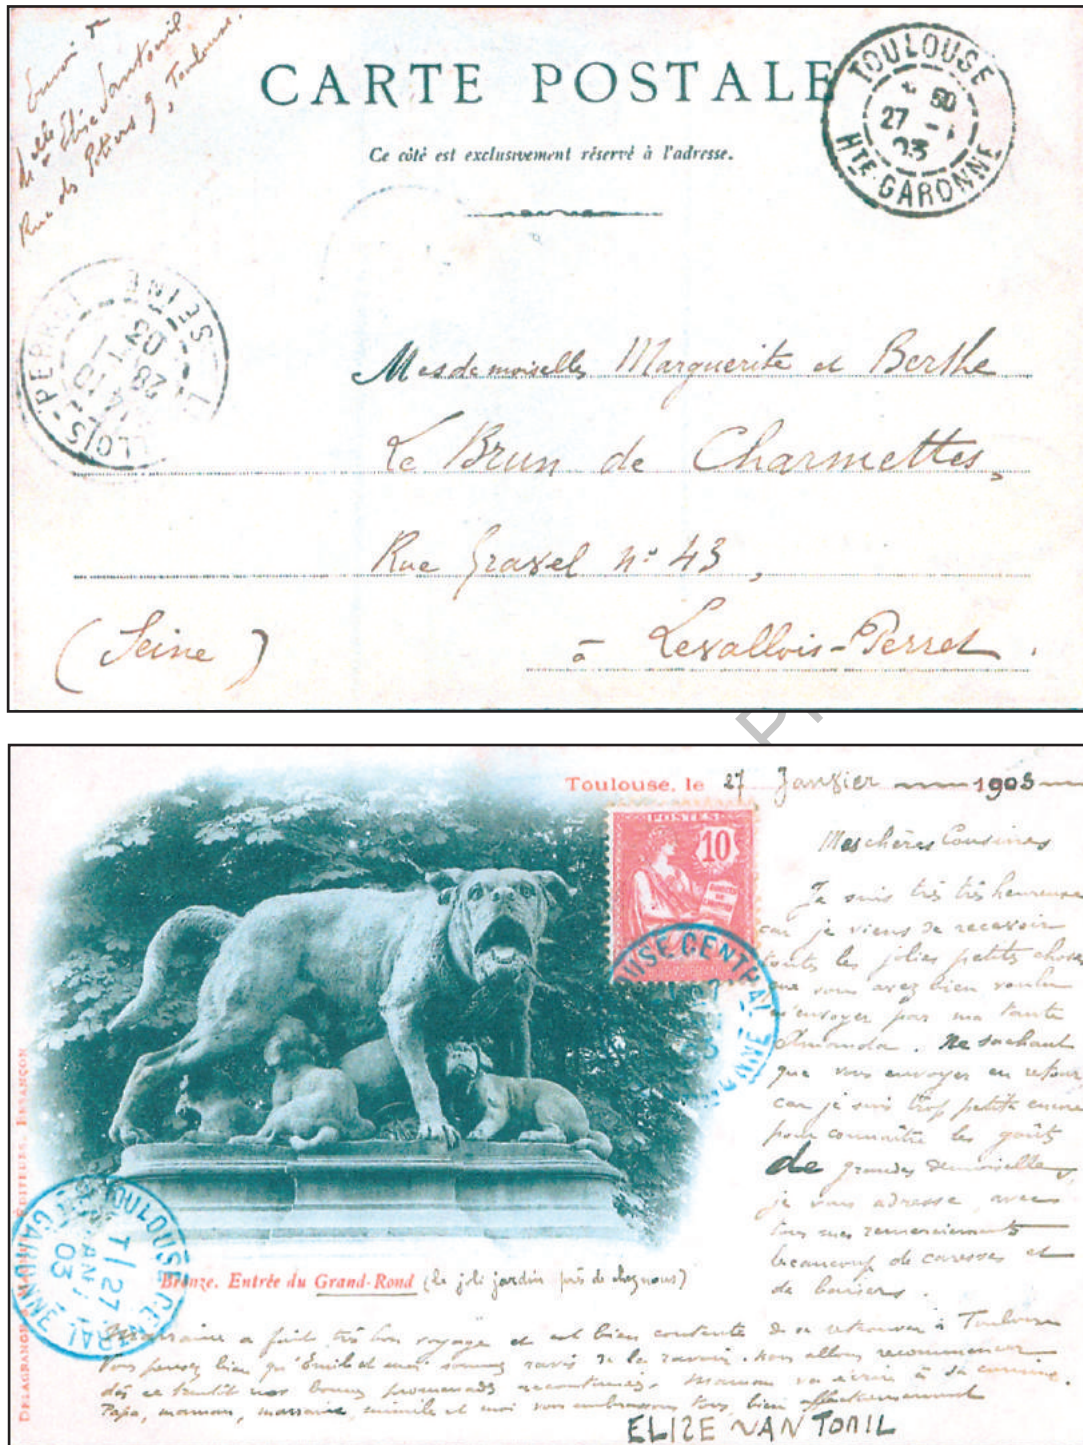 Envoi de
Melle Elise Vantouil
Rue des Potiers 9, Toulouse.
CARTE POSTALE
Ce côté est exclusivement réservé à l'adresse.
TOULOUSE
27
03
HTE-GARONNE
SEINE
LLOIS-PERRET
28
03
Mesdemoiselles Marguerite et Berthe
Le Brun de Charmettes,
Rue Gravel n° 43,
(Seine) à Levallois-Perret.
Toulouse, le 27 Janvier 1903
POSTES
10
Mes chères Cousines
Je suis très très heureuse
car je viens de recevoir
toutes les jolies petites choses
que vous avez bien voulu
m'envoyer par ma tante
Amanda. Ne sachant
que vous envoyer en retour
car je suis trop petite encore
pour connaître les goûts
de grandes demoiselles,
je vous adresse avec
tous mes remerciements
beaucoup de caresses et
de baisers.
OUSE CENTRAL
TOULOUSE CENTRAL
27
03
GARONNE
Bronze. Entrée du Grand-Rond (le joli jardin près de chez nous)
DELAGRANGE ÉDITEURS, BESANÇON
Marraine a fait très bon voyage et est bien contente de se retrouver à Toulouse
Vous pensez bien qu'Emile et moi sommes ravis de la ravoir. Nous allons recommencer
dès ce bonnes promenades Maman va écrire à sa cousine.
Papa, maman, marraine, mimile et moi vous embrassons tous bien affectueusement
ELIZE VANTOUIL